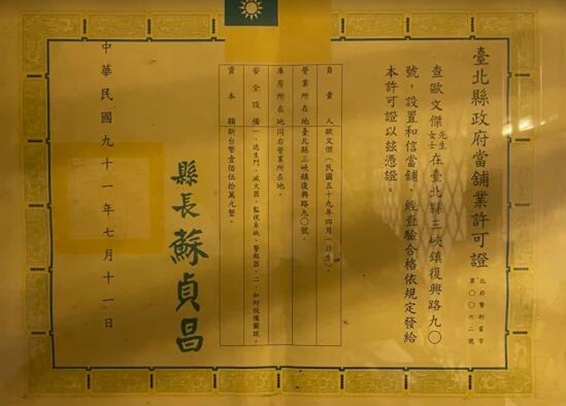 臺北縣政府當舖業許可證
北府警刑當字
第〇〇六二號
查歐文傑先生女士在臺北縣三峽鎮復興路九〇
號，設置和信當舖，經查驗合格依規定發給
本許可證以茲憑證。
負責人 歐文傑（民國五十九年四月一日生）。
營業所在地 臺北縣三峽鎮復興路九〇號。
庫房所在地 同右營業所在地。
安全設備 一、逃生門、滅火器、監視系統、警報器。二、如附設備圖說。
資本額 新台幣壹佰伍拾萬元整。
縣長 蘇貞昌
中華民國九十一年七月十一日